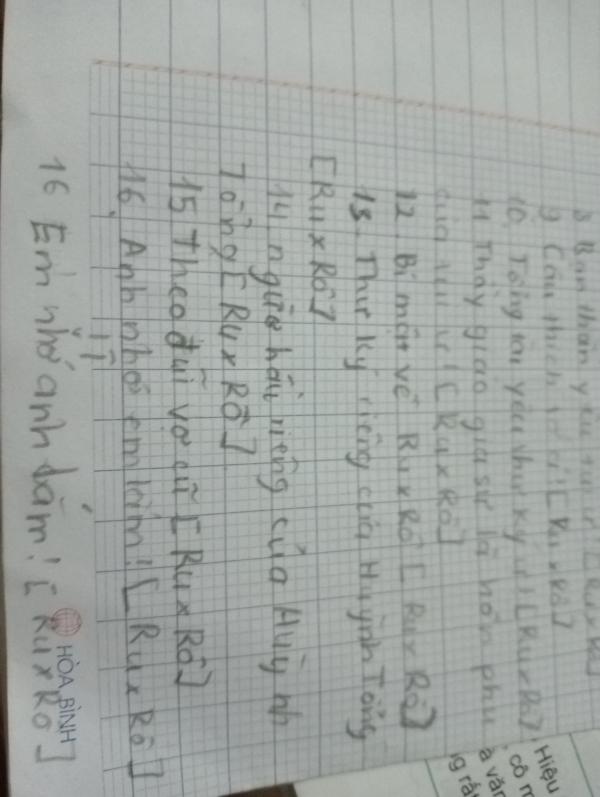 8 Bạn thân yêu [Ru x Rô]
9 Cậu thích [Ru x Rô]
10. Tổng tài yêu thư ký [Ru x Rô]
11 Thầy giáo gia sư là hôn phu
của [Ru x Rô]
12. Bí mật về Ru x Rô [Ru x Rô]
13. Thư ký riêng của Huỳnh Tổng
[Ru x Rô]
14 người hầu riêng của Huỳnh
Tổng [Ru x Rô]
15 Theo đuổi vợ cũ [Ru x Rô]
16. Anh nhớ em lắm! [Ru x Rô]
16 Em nhớ anh lắm! [Ru x Rô]
HÒA BÌNH
Hiệu
có m
à văn
g rất